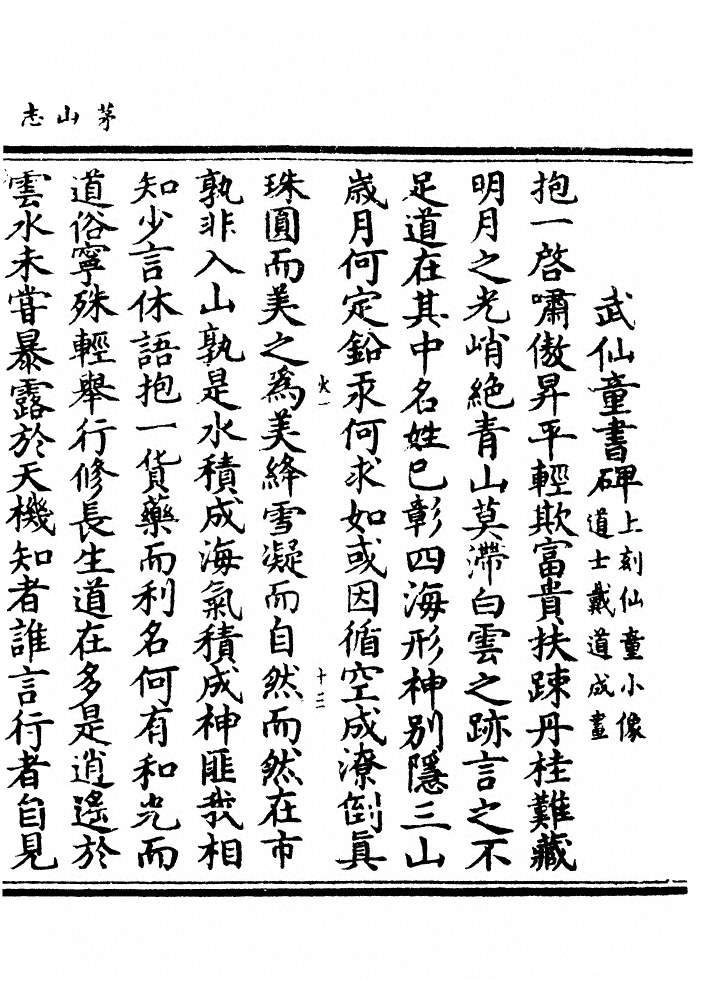 茅山志
武仙童書碑上刻仙童小像
道士戴道成畫
抱一啓嘯傲昇平輕欺富貴扶踈丹桂難藏
明月之光峭絶青山莫滯白雲之跡言之不
足道在其中名姓已彰四海形神別隱三山
歲月何定鉛汞何求如或因循空成潦倒眞
火一
十二
珠圓而美之爲美絳雪凝而自然而然在市
孰非入山孰是水積成海氣積成神匪我相
知少言休語抱一貨藥而利名何有和光而
道俗寧殊輕舉行修長生道在多是逍遙於
雲水未嘗暴露於天機知者誰言行者自見